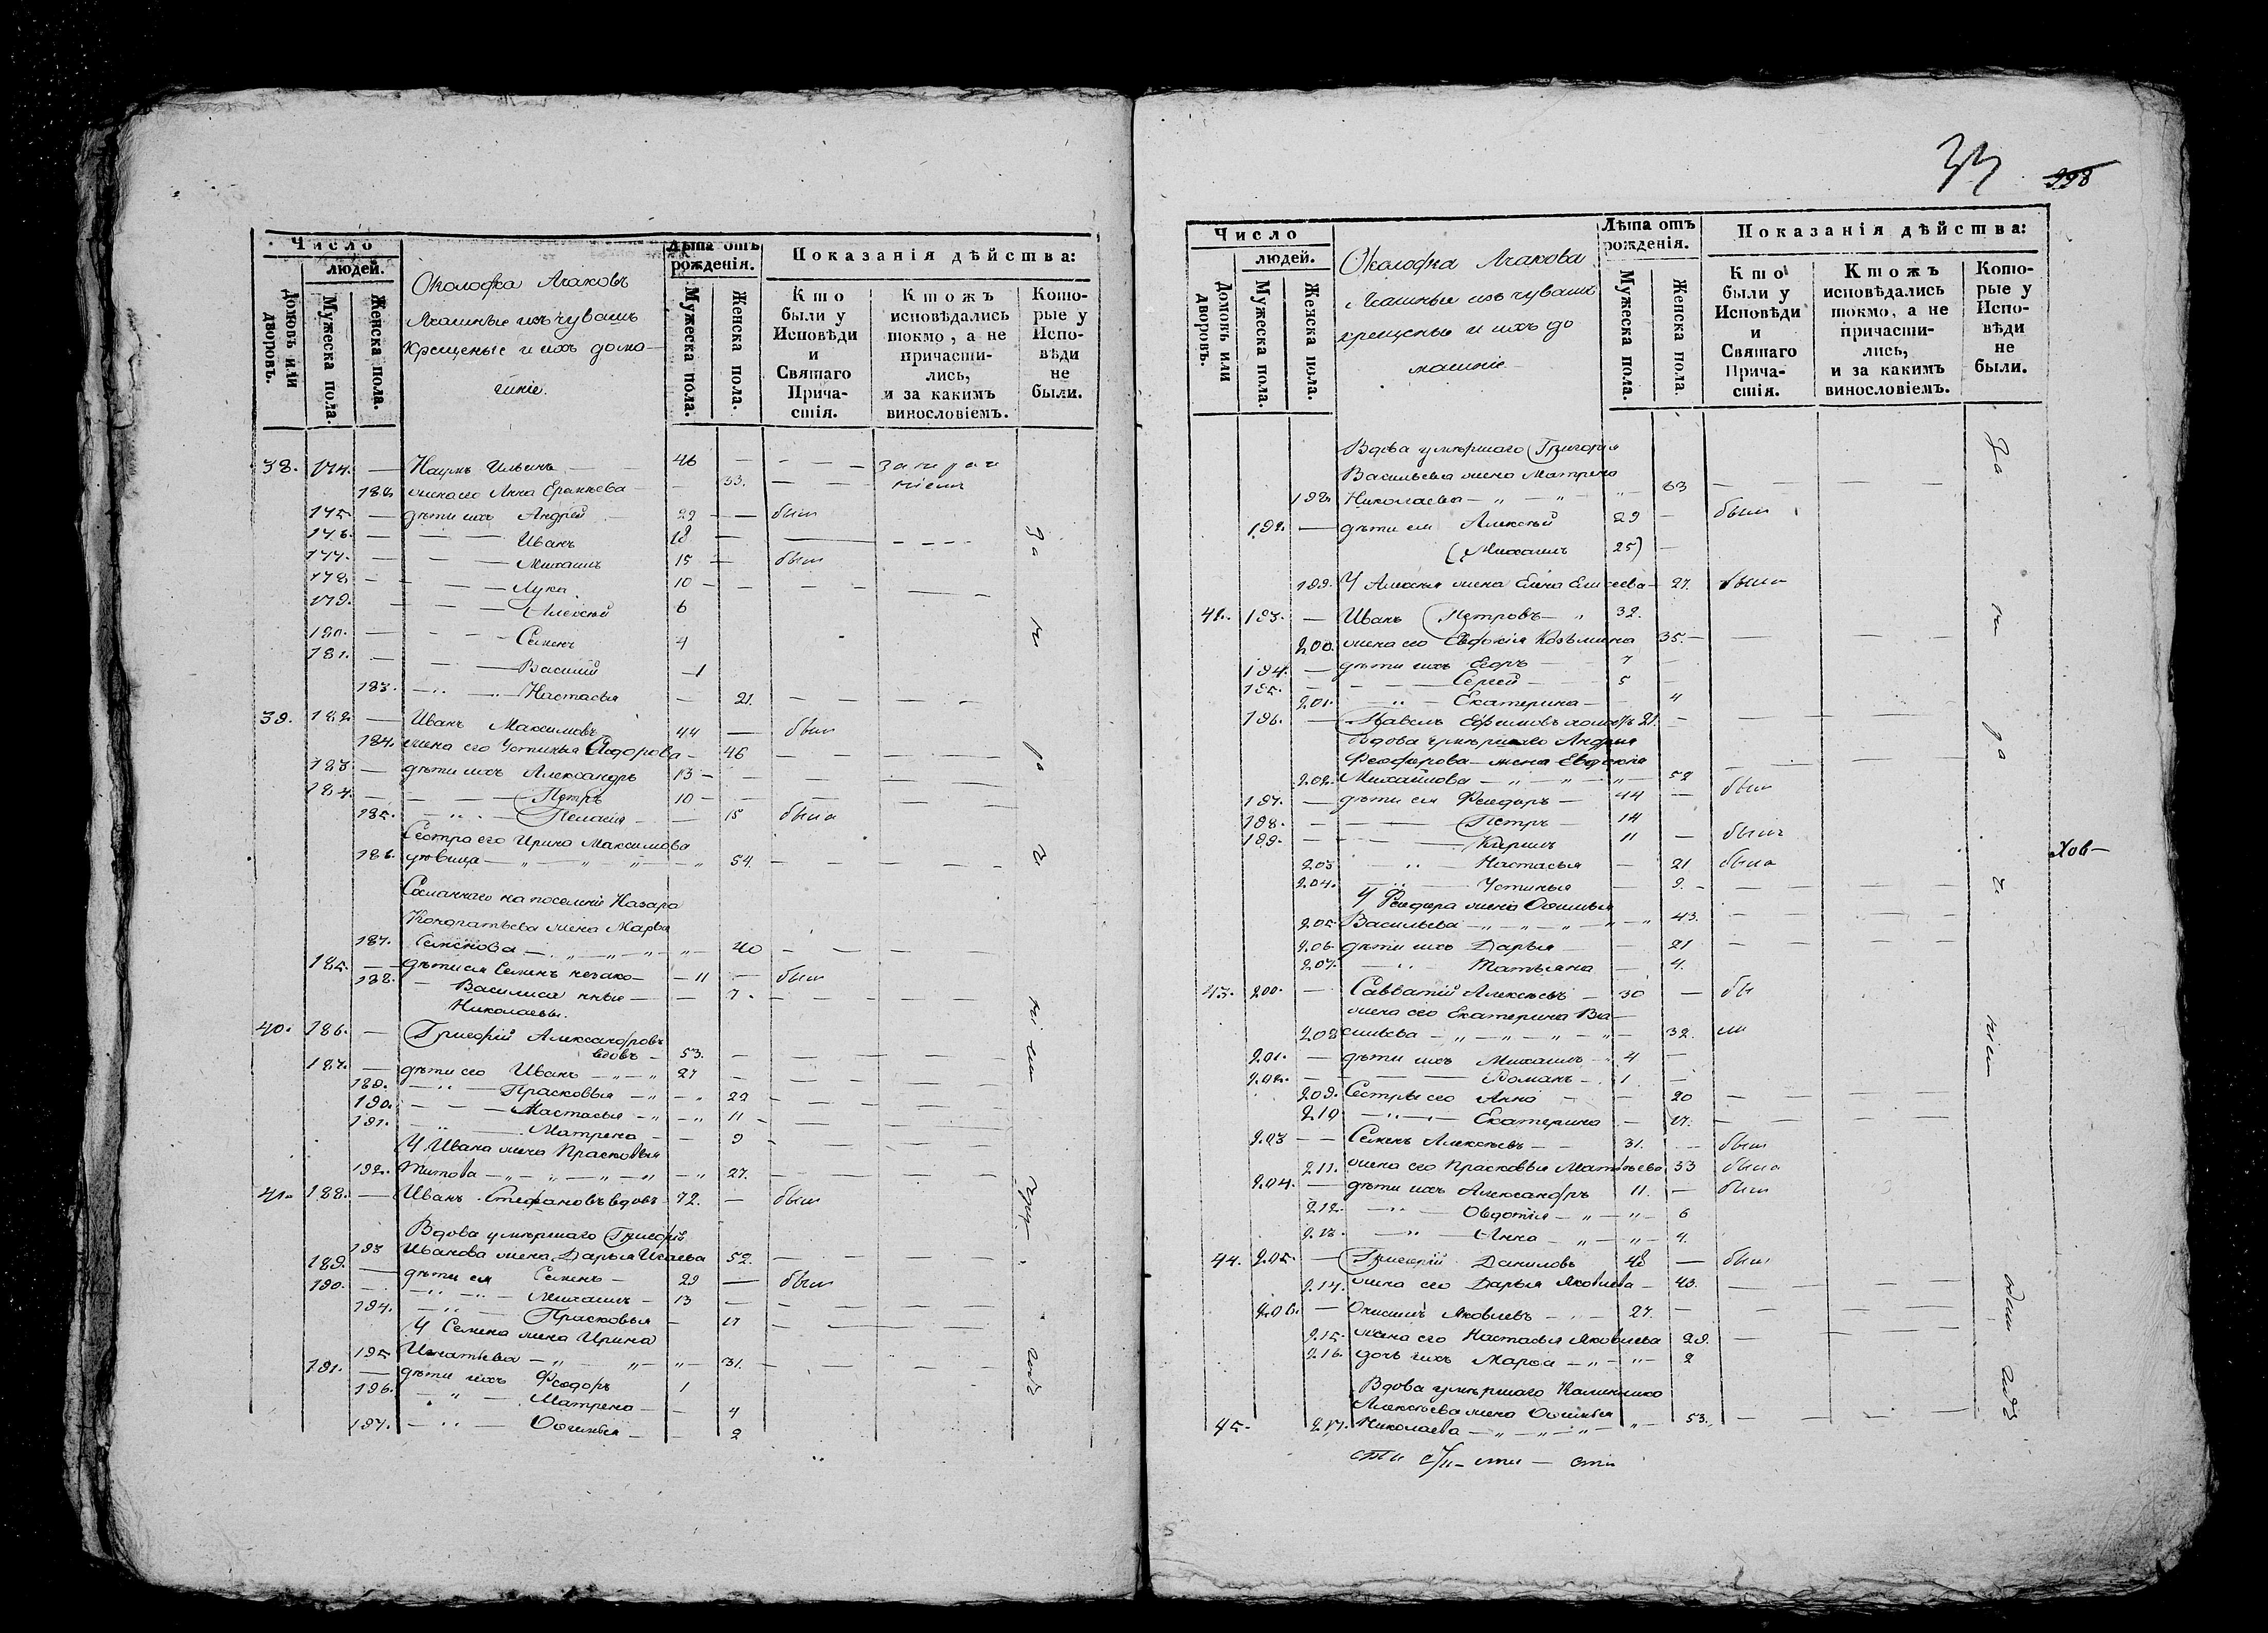 Число
людей.
Домовъ или дворовъ.
Мужеска пола.
Женска пола.
Околодка Агаковъ
Ясашные изъ чувашъ
крещеные и ихъ дома-
шніе.
Лѣта отъ рожденія.
Мужеска пола.
Женска пола.
Показанія дѣйства:
Кто были у Исповѣди и Святаго Причастія.
Ктожъ исповѣдались токмо, а не причастились, и за какимъ винословіемъ.
Которые у Исповѣди не были.
38. 174. — Наумъ Ильинъ — 46 — —
жена его Анна 33. — —
175. — дѣти ихъ Андрей — 22 — — былъ
176. — — — Иванъ 18 —
177. — — — Михаилъ 15 — былъ
178. — — — Лука 10 — —
179. — — — Алексѣй 6
180. — — — Семенъ 4
181. — — — Василій 1
183. — Настасья — 21. — —
39. 182. — Иванъ Максимовъ 44 — былъ
184. жена его Устинья Ѳедорова — 46 — —
183 — дѣти ихъ Александръ 13 — —
184. — — — Петръ 10 — —
185. — Пелагія — 15 была
Сестра его Ирина Максимова
186. дѣвица — 54. — —
Сосланнаго на поселеніе Назара
Кондратьева жена Марья
187. Семенова — 40 — —
185. — дѣти ея Семенъ незако- — 11 — былъ
188. — Василиса нные — — 7. — —
Николаевы.
40. 186. — Григорій Александровъ
вдовъ — 53. — —
187. — дѣти его Иванъ — 27 — —
189. — Прасковья — 22 — —
190. — Настасья — 11 — —
191. — Матрена — 9 — —
У Ивана жена Прасковья
192. Титова — 27. — —
41. 188. — Иванъ Стефановъ вдовъ 72. — былъ
Вдова умершаго Григорія
193 Иванова жена Дарья Исаева 52. — —
189. — дѣти ея Семенъ — 29 — былъ
190. — Михаилъ — 13 — —
194. — Прасковья — 17 — —
У Семена жена Ирина
195 Игнатьева — 31. — —
191. — дѣти ихъ Ѳеодоръ 1
196. — Матрена — — 4
197. — Ѳеофилья — — 2
33
998
Число
людей.
Домовъ или дворовъ.
Мужеска пола.
Женска пола.
Околодка Агакова
Ясашные изъ чувашъ
крещеные и ихъ до
машніе —
Лѣта отъ рожденія.
Мужеска пола.
Женска пола.
Показанія дѣйства:
Кто были у Исповѣди и Святаго Причастія.
Ктожъ исповѣдались токмо, а не причастились, и за какимъ винословіемъ.
Которые у Исповѣди не были.
Вдова умершаго Григорія
Васильева жена Матрена
198. Николаева — 63 — —
192. — дѣти ея Алексѣй 29 — былъ
(Михаилъ 25) —
199. У Алексѣя жена Елена Елисеева — 27. была
193. — Иванъ Петровъ — 32.
200. жена его Евдокія Козьмина 35. — —
194. — дѣти ихъ Егоръ — 7 —
195. — — — Сергей — 5 —
201. — Екатерина — 4
196. — Павелъ Ефимовъ 21. — —
Вдова умершаго Андрея
Ѳеодорова — жена Евдокія
202. Михайлова — 52 — —
197. — дѣти ея Ѳеодоръ — 44 — былъ
198. — — — Петръ — 14
199. — — — Кирилъ 11 — былъ
203 Настасья — 21 была
204. Устинья — 9. — —
У Ѳеодора жена
205 Васильева — 43. — —
206 дѣти ихъ Дарья — 21 — —
207. Татьяна — 4.
43. 200. — Савватій Алексѣевъ — 30 — бы
жена его Екатерина Ва-
208 сильева — 32. ли
201. — дѣти ихъ Михаилъ — 4 —
202. — — — Романъ — 1 —
209. Сестры его Анна — 20 — —
210 — Екатерина — 17. — —
203 — — Семенъ Алексѣевъ — 31. — былъ
211. жена его Прасковья Матвѣева 33 была
204. — дѣти ихъ Александръ 11. — былъ
212. — Овдотія — 6
213. — Анна — 4.
44. 205. — Григорій Даниловъ 48 — былъ
214. жена его Дарья Яковлева — 43. — —
206. — Онисимъ Яковлевъ — 27. — —
215. жена его Настасья Яковлева 29. — —
216. дочь ихъ Марѳа — 2
Вдова умершаго
Алексѣева жена
45. 217. Николаева — 53. — —